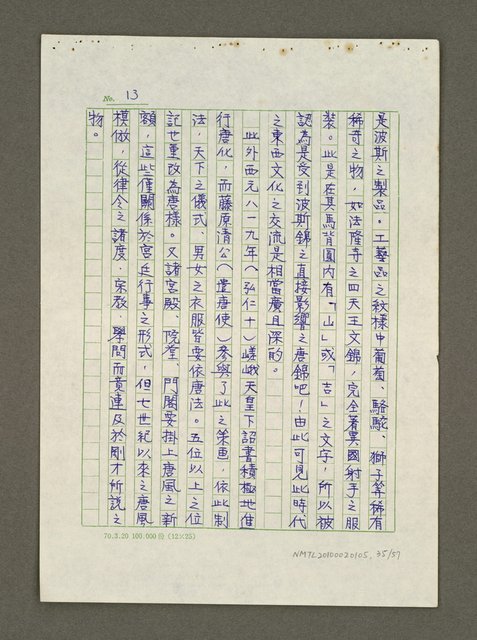 No. 13
是波斯之製品。工藝品之紋樣中葡萄、駱駝、獅子等稀有
稀奇之物，如法隆寺之四天王文錦，完全著異國射手之服
裝。此是在其馬背圖內有「山」或「吉」之文字，所以被
認為是受到波斯錦之直接影響之唐錦吧！由此可見此時代
之東西文化之交流是相當廣且深的。
此外西元八一九年（弘仁十）嵯峨天皇下詔書積極地進
行唐化，而藤原清公（遣唐使）參與了此之策画，依此制
法，天下之儀式、男女之衣服皆要依唐法。五位以上之位
記也重改為唐樣。又諸宮殿、院堂、門閣要掛上唐風之新
額，這些僅關係於宮廷行事之形式，但七世紀以來之唐風
模倣，從律令之諸度、宗教、學問而貫連及於剛才所說之
物。
70.3.20 100,000份 (12×25)
NMTL20100020105, 35/57